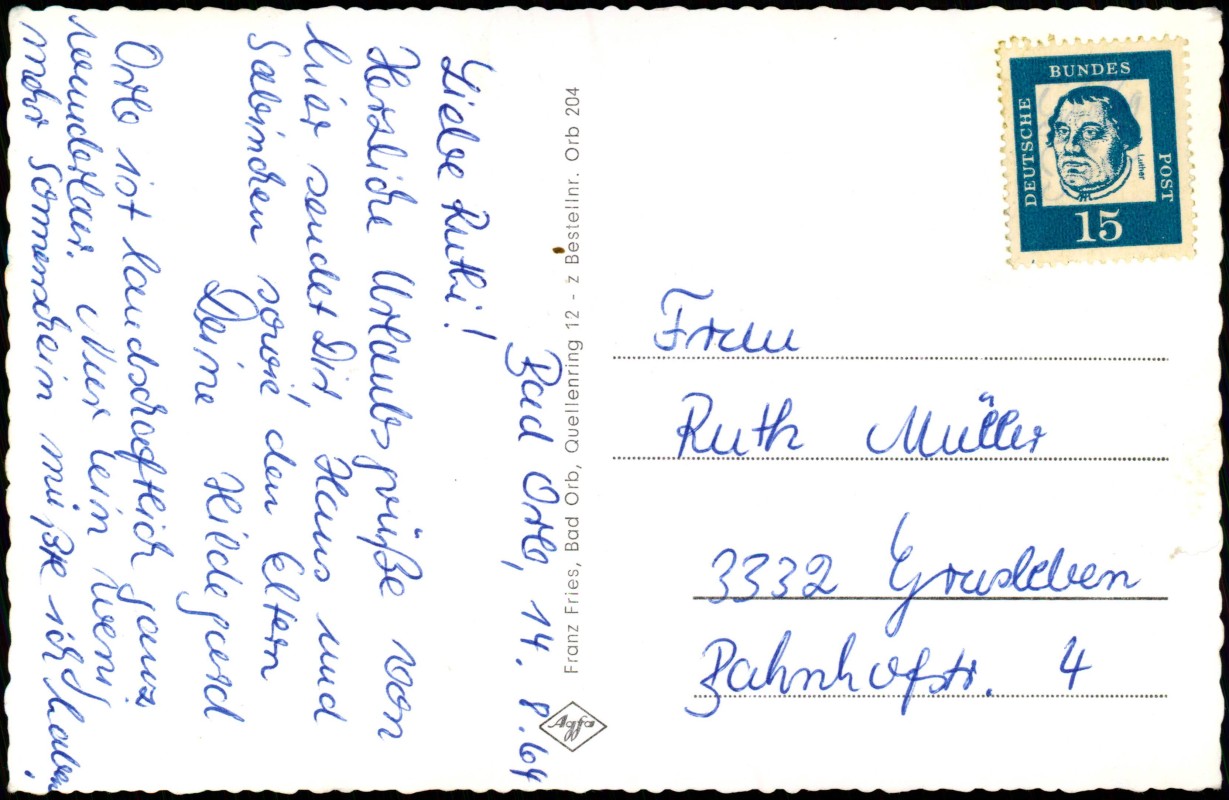 Bad Orb, 14. 8. 64
Liebe Ruthi!
Herzliche Urlaubsgrüße von
hier sendet Dir, Hans und
Sabinchen sowie den Eltern
Deine Hildegard
Orb ist landschaftlich ganz
wunderbar. Nur ein wenig
mehr Sonnenschein müßte ich haben!
Franz Fries, Bad Orb, Quellenring 12 - z Bestellnr. Orb 204
Agfa
DEUTSCHE
BUNDES
POST
Luther
15
Frau
Ruth Müller
3332 Grasleben
Bahnhofstr. 4